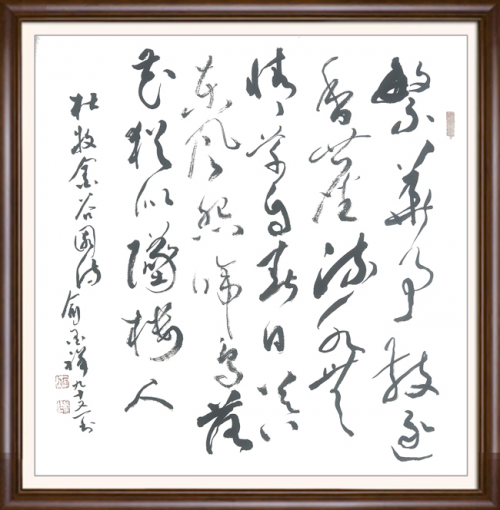 繁華事散逐
香塵流水無
情草自春日暮
東風怨啼鳥落
花猶似墜樓人
杜牧金谷園詩